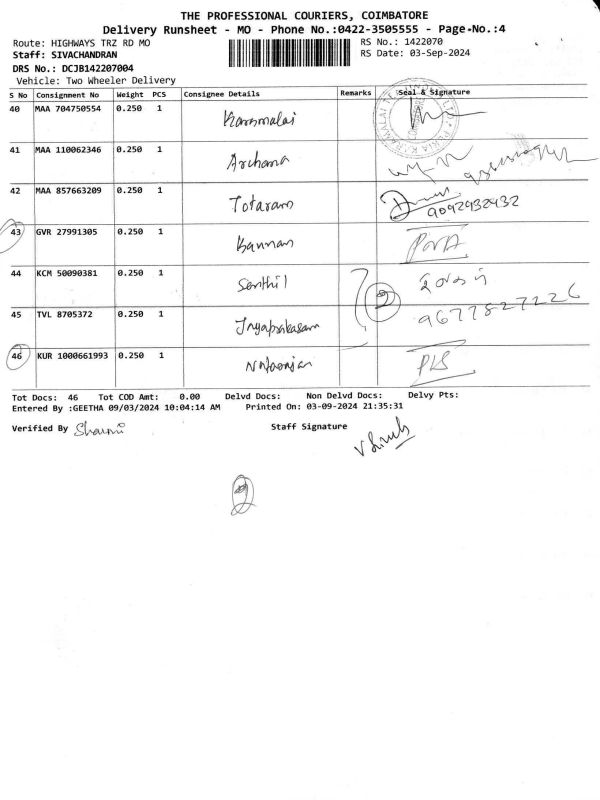 THE PROFESSIONAL COURIERS, COIMBATORE
Delivery Runsheet - MO - Phone No.:0422-3505555 - Page-No.:4
Route: HIGHWAYS TRZ RD MO
RS No.: 1422070
Staff: SIVACHANDRAN
RS Date: 03-Sep-2024
DRS No.: DCJB142207004
Vehicle: Two Wheeler Delivery
S No Consignment No Weight PCS Consignee Details Remarks Seal & Signature
40 MAA 704750554 0.250 1
41 MAA 110062346 0.250 1 Archana
42 MAA 857663209 0.250 1 Totaram 9092932432
43 GVR 27991305 0.250 1 Kannan
44 KCM 50090381 0.250 1 Senthil
45 TVL 8705372 0.250 1 9677827226
46 KUR 1000661993 0.250 1
Tot Docs: 46 Tot COD Amt: 0.00 Delvd Docs: Non Delvd Docs: Delvy Pts:
Entered By :GEETHA 09/03/2024 10:04:14 AM Printed On: 03-09-2024 21:35:31
Verified By
Staff Signature